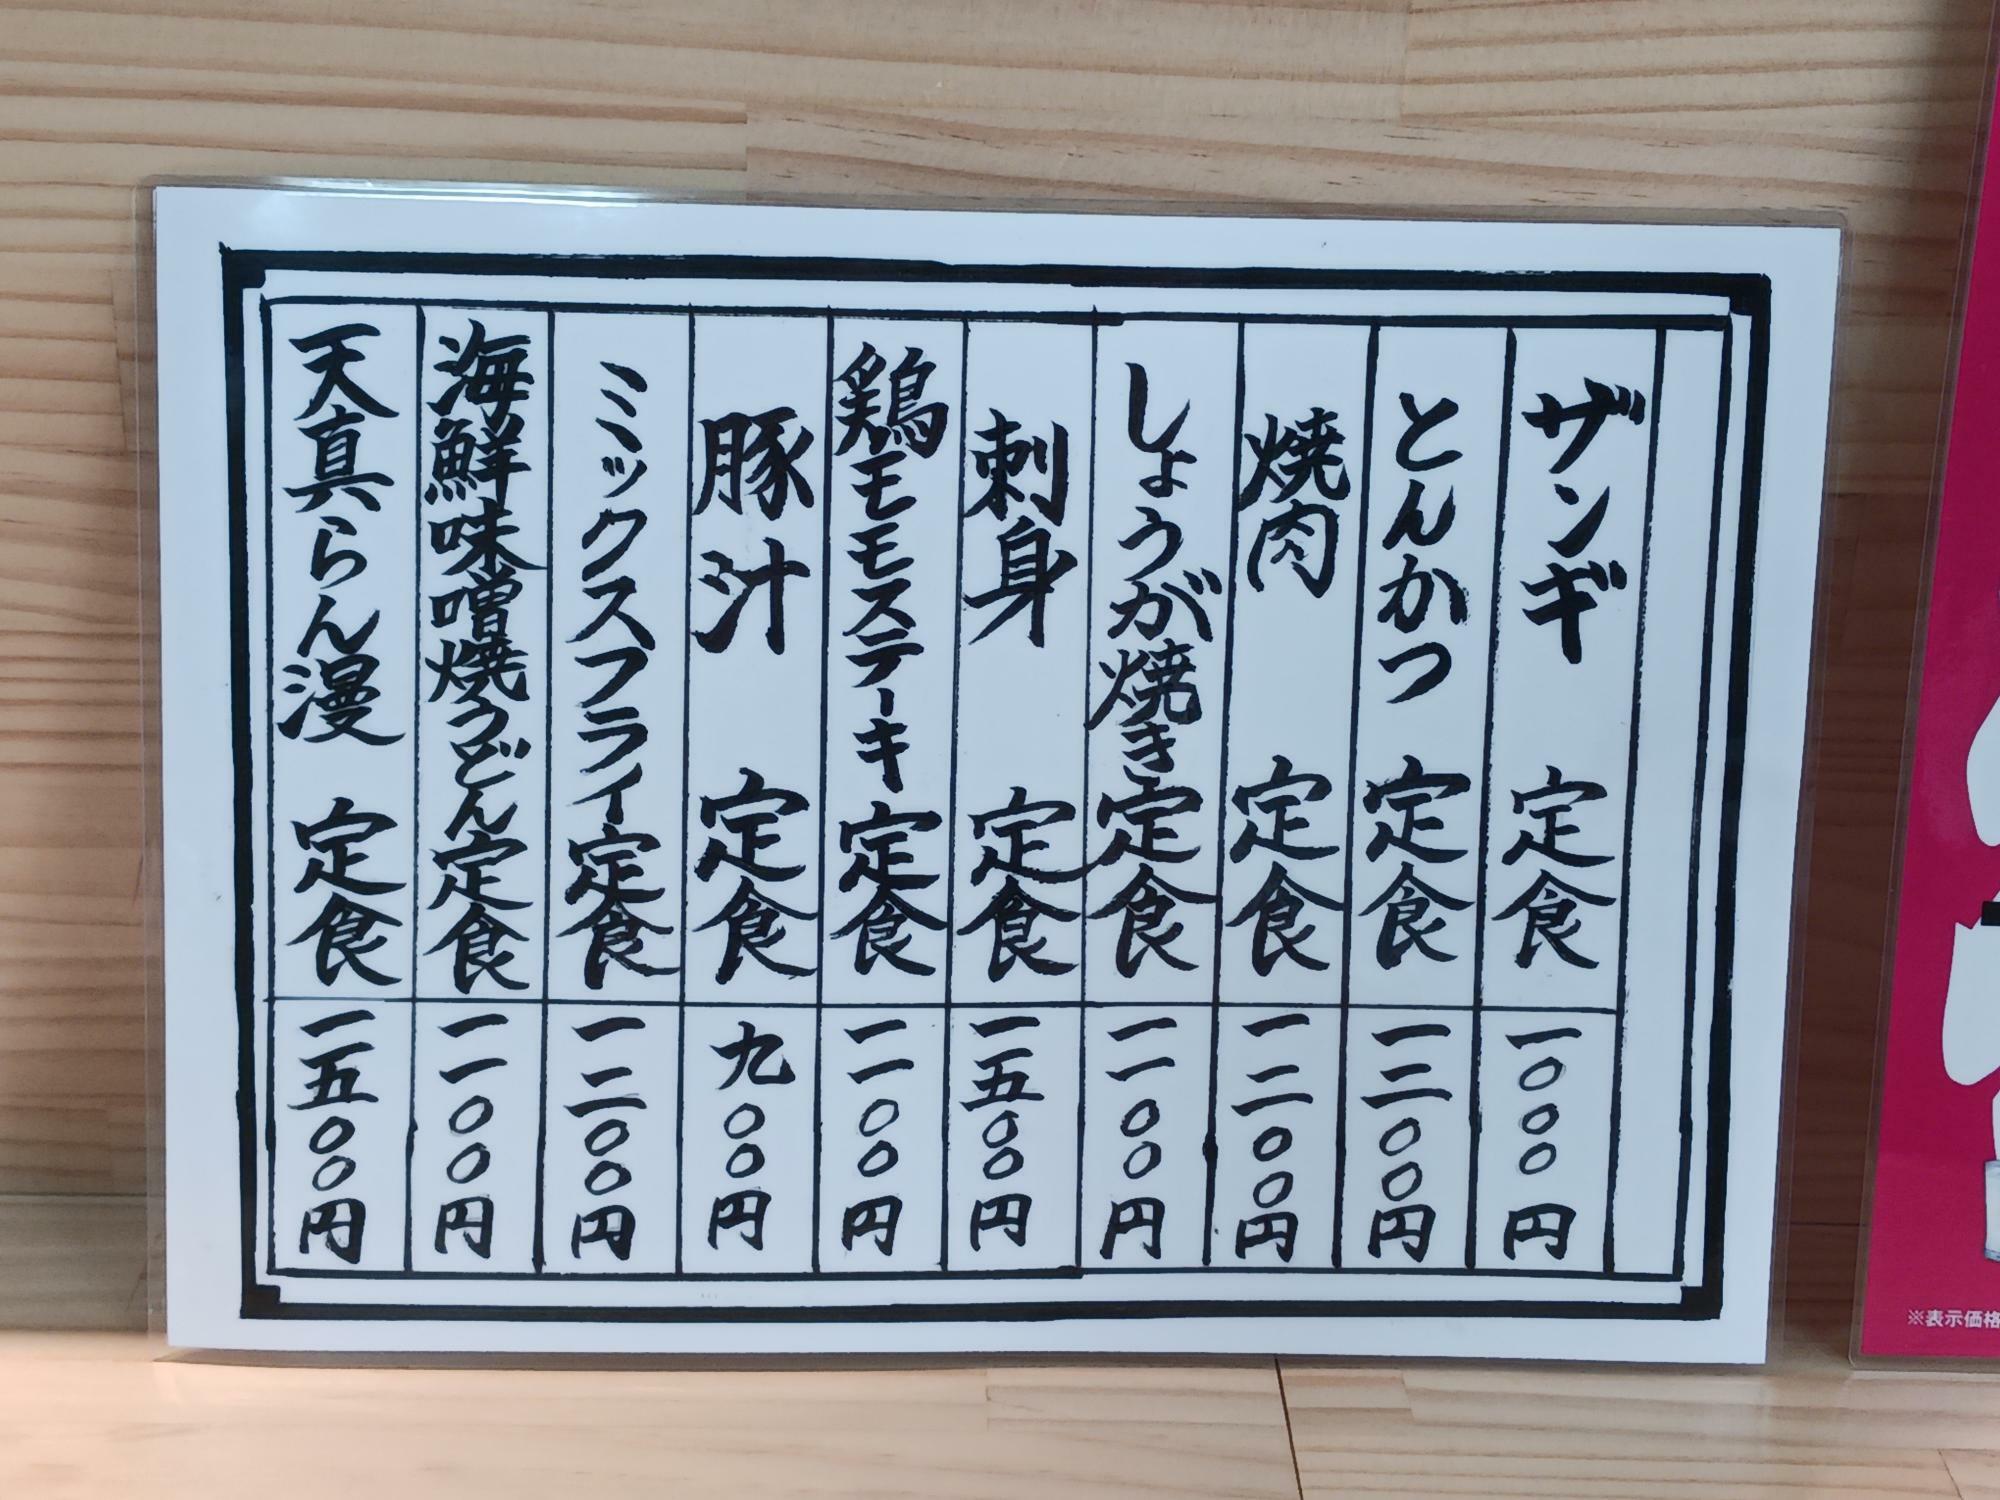 ザンギ定食 一〇〇〇円
とんかつ定食 一三〇〇円
焼肉定食 一二〇〇円
しょうが焼き定食 一一〇〇円
刺身定食 一五〇〇円
鶏モモステーキ定食 一一〇〇円
豚汁定食 九〇〇円
ミックスフライ定食 一二〇〇円
海鮮味噌焼うどん定食 一一〇〇円
天真らん漫定食 一五〇〇円
※表示価格